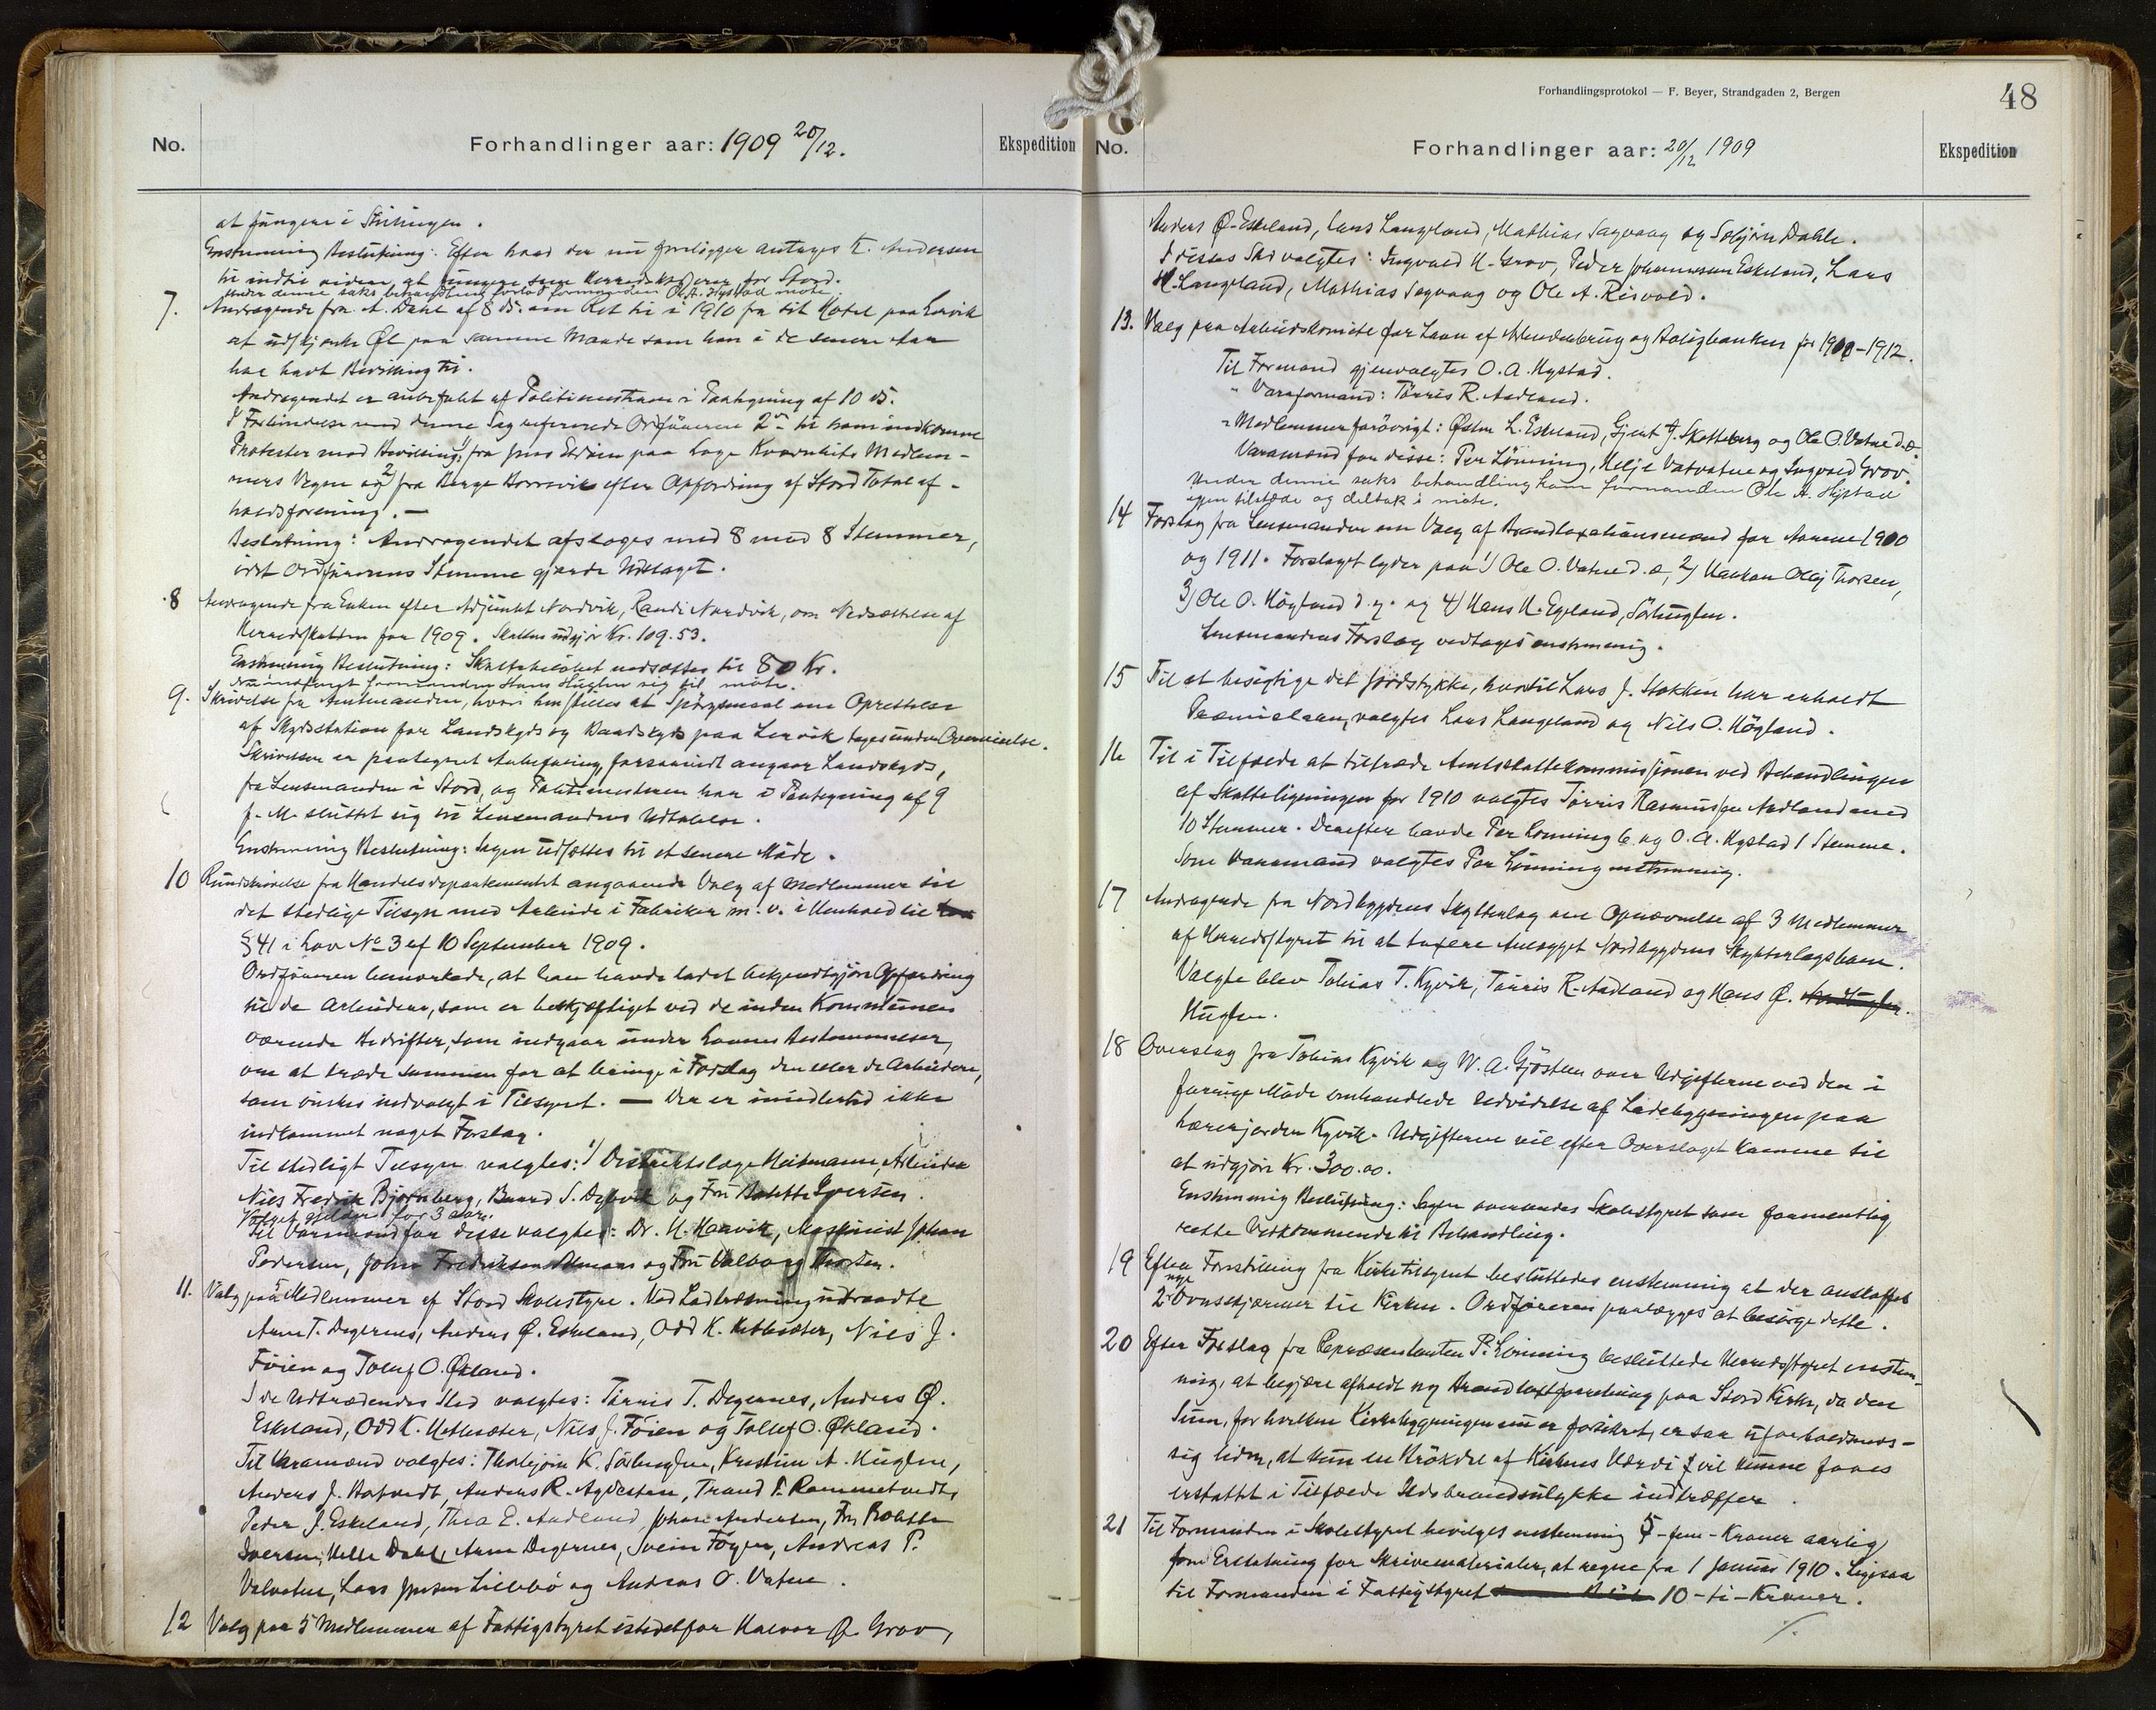 No.
Forhandlinger aar: 1909 20/12.
Ekspedition
at fungere i Stillingen.
Enstemmig Beslutning: Efter hvad der nu foreligger antages K. Andersen
til indtil videre at fungere som Herredskasserer for Stord.
Under denne saks behandling forlod formanden O. A. Hystad møte.
7. Andragende fra A. Dahl af 8 ds. om Ret til i 1910 fra sit Hotel paa Lervik
at udskjænke Øl paa samme Maade som han i de senere Aar
har havt Bevilling til.
Andragendet er anbefalet af Politimesteren i Paategning af 10 ds.
I Forbindelse med denne Sag refererede Ordføreren 2de til ham indkomne
Protester mod Bevilling: 1) fra Jens Strøm paa Loge Kværnbits Medlem-
mers Vegne og 2) fra Børge Horrevik efter Opfordring af Stord Total af-
holdsforening. —
Beslutning: Andragendet afsloges med 8 mod 8 Stemmer,
idet Ordførerens Stemme gjorde Udslaget.
8 Andragende fra Enken efter Adjunkt Nordvik, Randi Nordvik, om Nedsættelse af
Herredsskatten for 1909. Skatten udgjør Kr. 109.53.
Enstemmig Beslutning: Skattebeløbet nedsættes til 80 Kr.
Nu indfandt formanden Hans Huglen sig til møte.
9. Skrivelse fra Amtmanden, hvori henstilles at Spørgsmaal om Oprettelse
af Skydsstation for Landskyds og Baadskyds paa Lervik tages under Overveielse.
Skrivelsen er paategnet Anbefaling, forsaavidt angaar Landskyds,
fra Lensmanden i Stord, og Politimesteren har i Paategning af 9
f. M. sluttet sig til Lensmandens Udtalelse.
Enstemmig Beslutning: Sagen udsættes til et senere Møde.
10 Rundskrivelse fra Handelsdepartementet angaaende Valg af Medlemmer til
det stedlige Tilsyn med Arbeide i Fabriker m. v. i Henhold til
§ 41 i Lov No 3 af 10 September 1909.
Ordføreren bemærkede, at han havde ladet bekjendtgjøre Opfordring
til de Arbeidere, som er beskjæftiget ved de inden Kommunen
værende Bedrifter, som indgaar under Lovens Bestemmelser,
om at træde sammen for at bringe i Forslag den eller de Arbeidere,
som ønskes indvalgt i Tilsynet. — Der er imidlertid ikke
indkommet noget Forslag.
Til stedligt Tilsyn valgtes: 1) Distriktslæge Heitmann, Arbeider
Nils Fredrik Bjørnberg, Baard S. Dybvik og Fru Bolette Iversen.
Valget gjelder for 3 aar.
Til Varamænd for disse valgtes: Dr. H. Hanvik, Maskinist Johan
Pedersen, John Fredriksen Almaas og Fru Valborg Thorsen.
11. Valg paa 5 Medlemmer af Stord Skolestyre. Ved Lodtrækning udtraadte
Arne T. Degernes, Anders Ø. Eskeland, Odd K. Hetlesæter, Nils J.
Føien og Tollef O. Økland.
I de Udtrædendes Sted valgtes: Tørris T. Degernes, Anders Ø.
Eskeland, Odd K. Hetlesæter, Nils J. Føien og Tollef O. Økland.
Til Varamænd valgtes: Thorbjørn K. Sørhuglen, Kristian A. Huglen,
Anders J. Hatvedt, Anders R. Agdestein, Trond P. Rommetvedt,
Peder J. Eskeland, Thea E. Aadland, Johan Andersen, Fru Bolette
Iversen, Helle Dahl, Arne Degernes, Svein Føyen, Andreas P.
Valvatne, Lars Jensen Lillebø og Andreas O. Vatne.
12 Valg paa 5 Medlemmer af Fattigstyret istedetfor Halvor Ø. Grov,
Forhandlingsprotokol — F. Beyer, Strandgaden 2, Bergen
48
No.
Forhandlinger aar: 20/12 1909
Ekspedition
Anders Ø. Eskeland, Lars Langeland, Mathias Sagvaag og Solbjørn Dahle.
I disses Sted valgtes: Ingvald H. Grov, Peder Johannessen Eskeland, Lars
H. Langeland, Mathias Sagvaag og Ole A. Risvold.
13. Valg paa Arbeidskomite for Laan af Arbeiderbrug og Boligbanken for 1910-1912.
Til Formand gjenvalgtes O. A. Hystad.
" Varaformand: Tørris R. Aadland.
" Medlemmer forøvrigt: Østen L. Eskeland, Gjert J. Skotteberg og Ole O. Vatne d.æ.
Varamænd for disse: Per Lønning, Helje Vatvatne og Ingvald Grov.
Under denne saks behandling kom formanden Ole A. Hystad
igjen tilstede og deltok i møte.
14 Forslag fra Lensmanden om Valg af Brandtaxationsmænd for Aarene 1910
og 1911. Forslaget lyder paa 1) Ole O. Vatne d. æ, 2) Haakon Olaj Thorsen,
3) Ole O. Høgland d. y. og 4) Hans H. Egeland, Sørhuglen.
Lensmandens Forslag vedtages enstemmig.
15 Til at besigtige det Jordstykke, hvortil Lars J. Stokken har erholdt
Præmielaan, valgtes Lars Langeland og Nils O. Høgland.
16 Til i Tilfælde at tiltræde Amtsskattekommissionen ved Behandlingen
af Skatteligningen for 1910 valgtes Tørris Rasmussen Aadland med
10 Stemmer. Derefter havde Per Lønning 6 og O. A. Hystad 1 Stemme.
Som Varamand valgtes Per Lønning enstemmig.
17 Andragende fra Nordbygdens Skytterlag om Opnævnelse af 3 Medlemmer
af Herredsstyret til at taxere Anlægget Nordbygdens Skytterlagsbane.
Valgte blev Tobias T. Kyvik, Tørris R. Aadland og Hans Ø.
Huglen.
18 Overslag fra Tobias Kyvik og W. A. Gjøstein over Udgifterne ved den i
forrige Møde omhandlede Udvidelse af Ladebygningen paa
Lærerjorden Kyvik. Udgifterne vil efter Overslaget komme til
at udgjøre Kr. 300.00.
Enstemmig Beslutning: Sagen oversendes Skolestyret som formentlig
rette Vedkommende til Behandling.
19 Efter Forestilling fra Kirketilsynet besluttedes enstemmig at der anskaffes
2 nye Ovnsskjærmer til Kirken. Ordføreren paalægges at besørge dette.
20 Efter Forslag fra Repræsentanten P. Lønning besluttede Herredsstyret enstem-
mig, at begjære afholdt ny Brandtaxtforretning paa Stord Kirke, da den
Sum, for hvilken Kirkebygningen nu er forsikret, er saa uforholdsmæs-
sig liden, at kun en Brøkdel af Kirkens Værdi vil kunne faaes
erstattet i Tilfælde Ildsbrandsulykke indtræffer.
21 Til Formanden i Skolestyret bevilges enstemmig 5 - fem - Kroner aarlig
som Erstatning for Skrivematerialer, at regne fra 1 Januar 1910. Ligesaa
til Formanden i Fattigstyret 10 - ti - Kroner.